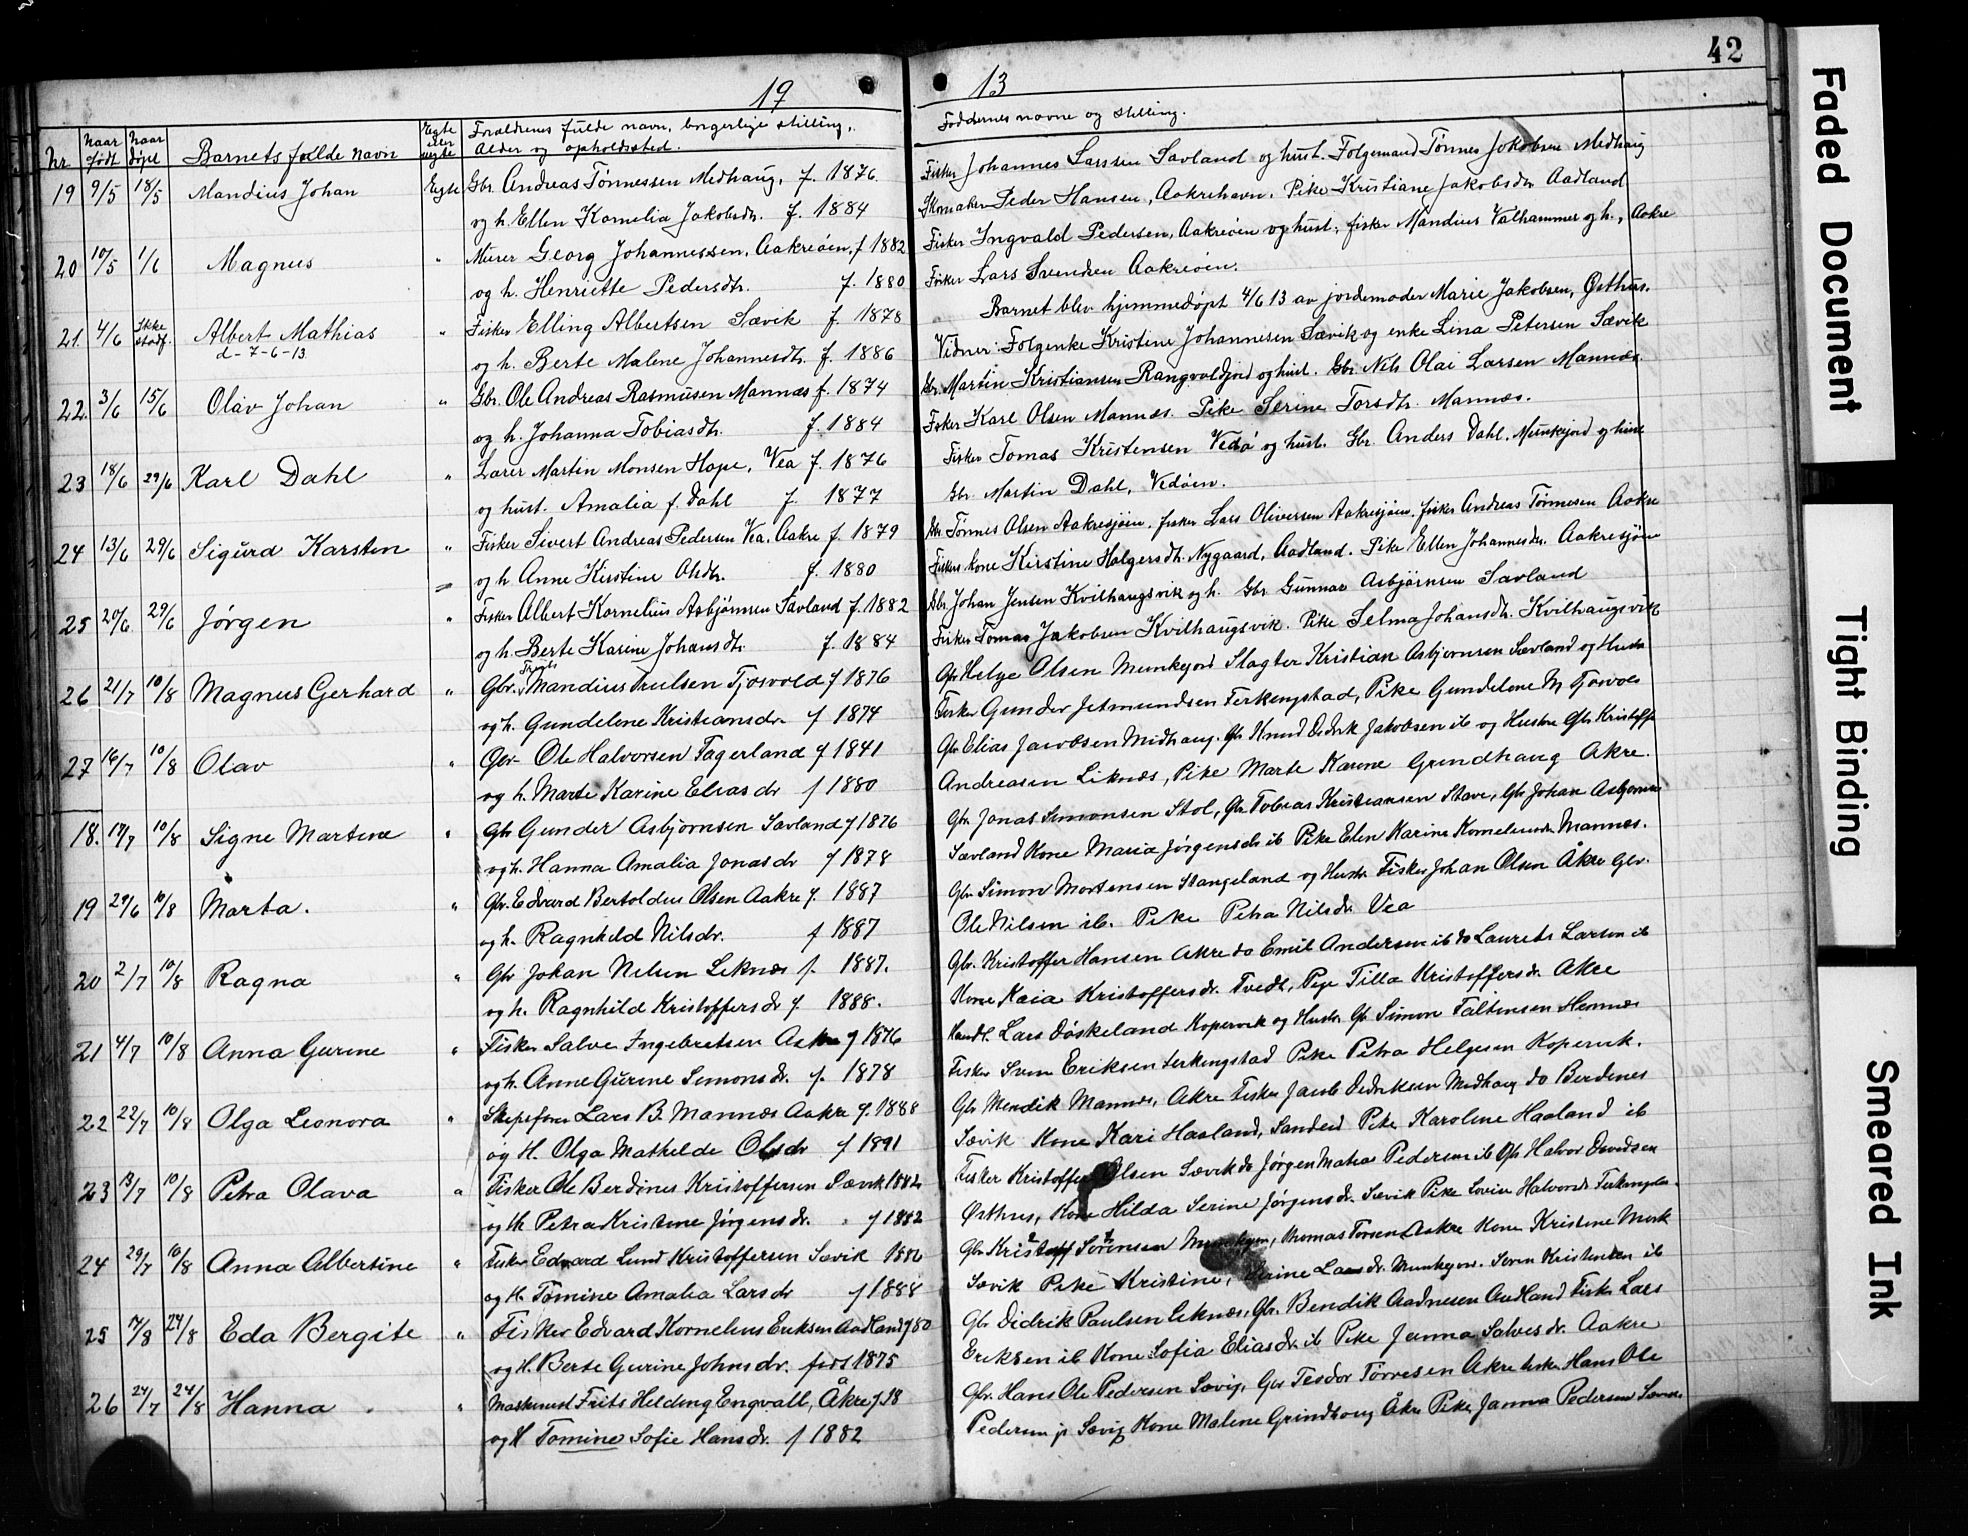 42
19
13
Nr.
Naar født
Naar døpt
Barnets fulde navn
Egte eller uegte
Forældrenes fulde navn, borgerlige stilling,
Alder og opholdssted.
Faddernes navne og stilling.
19 9/5 18/5 Mandius Johan Egte Gbr. Andreas Tønnessen Medhaug, f. 1876
og h. Ellen Kornelia Jakobsdtr. f. 1884
Fisker Johannes Larsen Sævland og hust. Folgemand Tønnes Jakobsen Medhaug
Skomaker Peder Hansen, Aakrehavn. Pike Kristiane Jakobsdtr. Aadland
20 10/5 1/6 Magnus " Murer Georg Johannessen, Aakreøen, f 1882
og h. Henriette Pedersdtr. f. 1880
Fisker Ingvald Pedersen, Aakreøen og hust., fisker Mandius Valhammer og h., Aakre
Fisker Lars Svendsen Aakreøen.
21. 4/6 Ikke stadf. Albert Mathias " Fisker Elling Albertsen Sævik f. 1878
d- 7-6-13
og h. Berte Malene Johannesdtr. f. 1886
Barnet blev hjemmedøpt 4/6 13 av jordemoder Marie Jakobsen, Østhus.
Vidner: Folgenke Kristine Johannesen Sævik og enke Lina Petersen Sævik
22. 3/6 15/6 Olav Johan " Gbr. Ole Andreas Rasmusen Mannæs f. 1874
og h. Johanna Tobiasdtr. f. 1884
Gbr. Martin Kristiansen Rangvaldjord og hust. Gbr. Nils Olai Larsen Mannæs
Fisker Karl Olsen Mannæs. Pike Serine Torsdtr. Mannæs.
23 18/6 29/6 Karl Dahl " Lærer Martin Monsen Hope, Vea f. 1876
og hust. Amalia f. Dahl f. 1877
Fisker Tomas Kristensen Vedø og hust. Gbr. Anders Dahl, Munkejord og hust
Gbr Martin Dahl, Vedøen.
24 13/6 29/6 Sigurd Karsten " Fisker Sivert Andreas Pedersen Vea. Aakre f. 1879
og h Anne Kirstine Olsdtr. f. 1880
Gbr. Tønnes Olsen Aakresjøen, fisker Lars Oliversen Aakresjøen, fisker Andreas Tønnesen Aakre
Fiskers kone Kirstine Holgersdtr. Nygaard, Aadland. Pike Ellen Johannesdtr. Aakresjøen
25 20/6 29/6 Jørgen " Fisker Albert Kornelius Asbjørnsen Sævland f. 1882
og h. Berte Karine Johansdtr. f. 1884
Gbr. Johan Jensen Kvilhaugsvik og h. Gbr. Gunnar Asbjørnsen Sævland
Fisker Tomas Jakobsen Kvilhaugsvik. Pike Selma Johansdtr. Kvilhaugsvik
26 21/7 10/8 Magnus Gerhard " Gbr. Mandius Trulsen Tjosvold f 1876
og h. Gundelene Kristiansdr f 1874
Gbr Helge Olsen Munkejord Slagter Kristian Asbjørnsen Sævland og Hustr
Fisker Gunder Jetmundsen Ferkengstad, Pike Gundelene M Tjosvol
27 16/7 10/8 Olav " Gbr Ole Halvorsen Fagerland f 1841
og h. Marte Karine Elias dr f 1880
Gbr Elias Jacobsen Midhaug. Gbr Knud Didrik Jakobsen ib og Hustru Gbr Kristoffer
Andreasen Liknæs, Pike Marte Karine Grindhaug Akre.
18. 17/7 10/8 Signe Martine " Gbr Gunder Asbjornsen Sævland f 1876
og h. Hanna Amalia Jonas dr f 1878
Gbr. Jonas Simonsen Stol, Gbr Tobias Kristiansen Stave, Gbr Johan Asbjornsen
Sævland Kone Maria Jørgensdr ib Pike Elen Karine Korneliusdr Mannes.
19 29/6 10/8 Marta. " Gbr. Edvard Bertoldus Olsen Aakre f. 1887
og h. Ragnhild Nilsdr. f 1887
Gbr Simon Mortensen Stangeland og Hustr Fisker Johan Olsen Åkre Gbr.
Ole Nilsen ib. Pike Petra Nilsdr. Vea
20 2/7 10/8 Ragna " Gbr Johan Nilsen Liknes f. 1887.
og h. Ragnhild Kristoffersdr f. 1888.
Gbr. Kristoffer Hansen Akre do Emil Andersen ib do Laurits Larsen ib
Kone Kaia Kristoffersdr. Tvedt, Pige Tilla Kristoffersdr. Akre
21 4/7 10/8 Anna Gurine " Fisker Salve Ingebretsen Aakre f 1876
og h. Anne Gurine Simonsdr. f. 1878
Handl. Lars Døskeland Kopervik og Hustr Gbr Simon Faltinsen Hemnes
Fisker Sven Eriksen Ferkengstad Pike Petra Helgesen Kopervik.
22 22/7 10/8 Olga Leonora " Lars B. Mannes Aakre f. 1888
og H. Olga Mathilde Olsdr f 1891
Gbr Mendik Mannes, Akre Fisker Jacob Didriksen Medhaug do Berdines
Sævik Kone Kari Haaland, Sandeid Pike Karoline Haaland ib
23 13/7 10/8 Petra Olava " Fisker Ole Berdines Kristoffersen Sævik 1882
og H Petra Kristine Jørgensdr. f 1882
Fisker Kristoffer Olsen Sævik do Jørgen Matias Pedersen ib Gbr Halvor Davidsen
Østhus, Kone Hilda Serine Jørgensdr. Sævik Pike Lovise Halvorsdr Ferkengstad.
24 29/7 10/8 Anna Albertine " Fisker Edvard Lund Kristoffersen Sævik 1886
og H. Tomine Amalia Larsdr f 1888
Gbr Kristoff Sørensen Munkejor, Thomas Torsen Aakre Kone Kristine Munk
Sævik Pike Kristine, Serine Larsdr. Munkejor. Soren Kristensen ib
25 17/8 24/8 Eda Bergite " Fisker Edvard Kornelius Eriksen Aadland f 80
og H. Berte Gurine Johnsdr. født 1875
Gbr Didrik Paulsen Liknes, Gbr. Bendik Aadnesen Aadland Fisker Lars
Eriksen ib Kone Sofia Eliasdr. ib Pike Janna Salvesdr. Aakre
26 24/7 24/8 Hanna " Maskinist Frits Helding Engvall, Åkre f 18
og H Tomine Sofie Hansdr. f 1882
Gbr. Hans Ole Pedersen Sævig, Gbr Tesdor Torresen Akre Fisker Hans Ole
Pedersen jr Sævig Kone Malene Grindhaug Akre Pike Janna Pedersen
Faded Document
Tight Binding
Smeared Ink